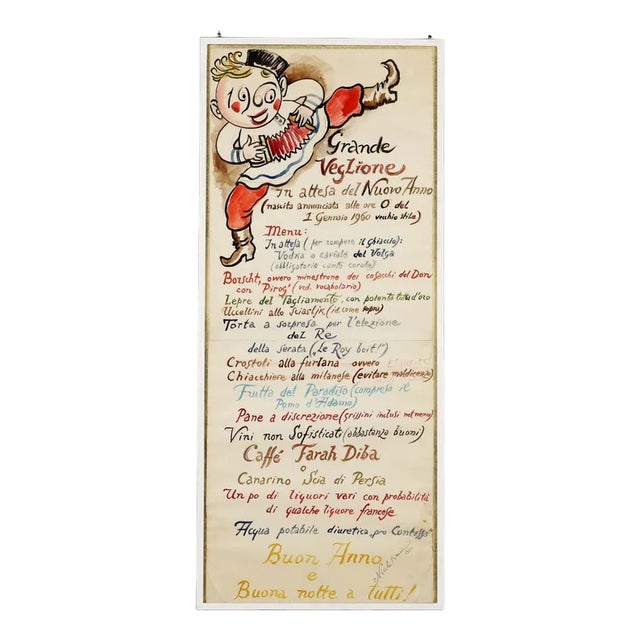 1960
Grande
Veglione
In attesa del Nuovo Anno
(nascita annunciata alle ore 0 del
1 Gennaio 1960 vecchio stile)
Menu:
In attesa (per rompere il ghiaccio):
Vodka o caviale del Volga
(obbligatorio canto corale)
Borscht, ovvero minestrone dei cosacchi del Don
con Pirog' (ved. vocabolario)
Lepre del Tagliamento, con potenta d'oro
Uccellini allo Sciaslik (id. come sopra)
Torta a sorpresa per l'elezione
del Re
della serata („Le Roy boit!")
Crostoli alla furlana ovvero
Chiacchiere alla milanese (evitare maldicenze)
Frutta del Paradiso (compreso il
Pomo d'Adamo)
Pane a discrezione (grissini inclusi nel menu)
Vini non Sofisticati (abbastanza buoni)
Caffé Farah Diba
o
Canarino Scia di Persia
Un po di liquori vari con probabilità
di qualche liquore francese
Acqua potabile diuretica, pro
Buon Anno
e
Buona notte a tutti!